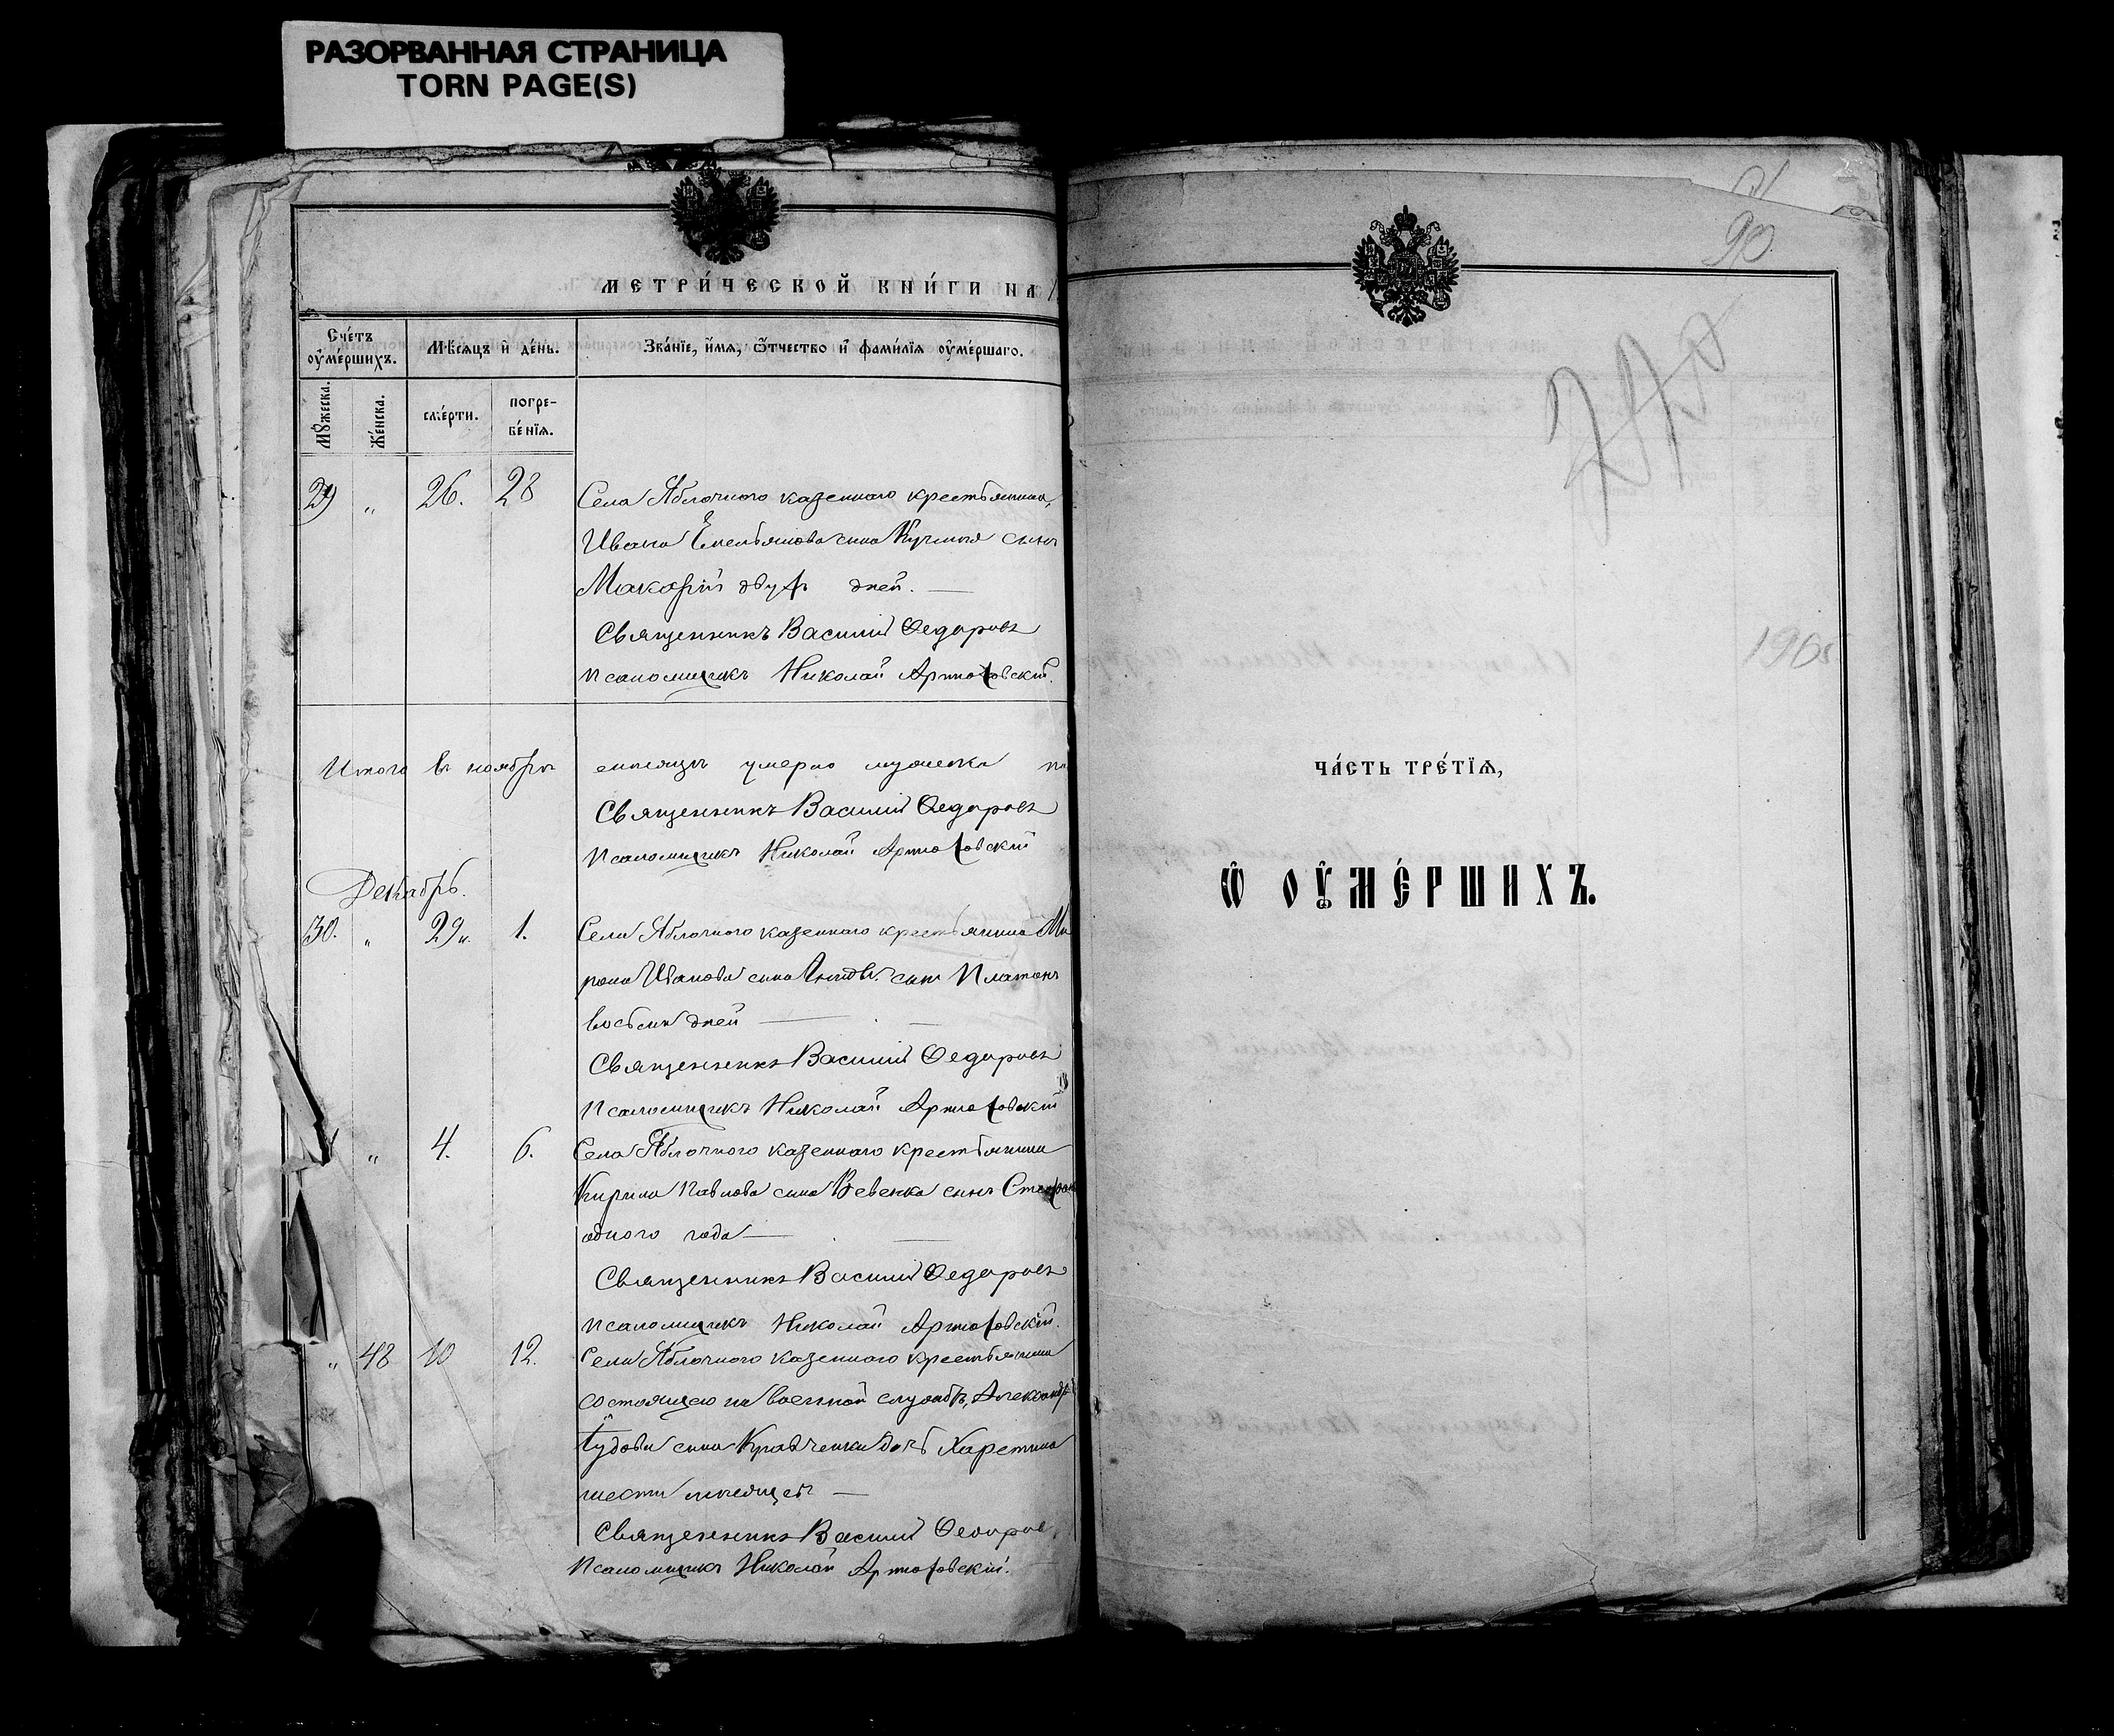 РАЗОРВАННАЯ СТРАНИЦА
TORN PAGE(S)
МЕТРИ́ЧЕСКОЙ КНИ́ГИ НА 1
Сче́тъ оу҆ме́ршихъ.
Мѣ́сяцъ и҆ де́нь.
Зва́нїе, и҆́мѧ, ѻ҆́тчество и҆ фами́лїѧ оу҆ме́ршаго.
Мꙋ́жеска.
Же́нска.
сме́рти.
погре-
бе́нїѧ.
29 „ 26. 28 Села Яблочного казенного крестьянина,
Ивана Емельянова сына Кучмия сынъ
Макарій двухъ дней. —
Священникъ Василій Ѳедоровъ
Псаломщикъ Николай Артюховскій.
Итого въ ноябрѣ мѣсяцѣ умерло мужеска
Священникъ Василій Ѳедоровъ
Псаломщикъ Николай Артюховскій
Декабрь.
30. „ 29 н. 1. Села Яблочного казенного крестьянина Ми
рона Иванова сына сынъ Платонъ
восьми дней —
Священникъ Василій Ѳедоровъ
Псаломщикъ Николай Артюховскій
„ 4. 6. Села Яблочного казенного крестьянина
Кирила Павлова сына Ревенка сынъ Стефанъ
одного года —
Священникъ Василій Ѳедоровъ
Псаломщикъ Николай Артюховскій.
„ 48 10 12. Села Яблочного казенного крестьянина
состоящаго на военной службѣ, Александра
сына Кравченка дочь Харетина
шести мѣсяцевъ —
Священникъ Василій Ѳедоровъ
Псаломщикъ Николай Артюховскій.
90
190
ЧА́СТЬ ТРЕ́ТЇѦ,
Ѽ ОУ҆МЕ́РШИХЪ.